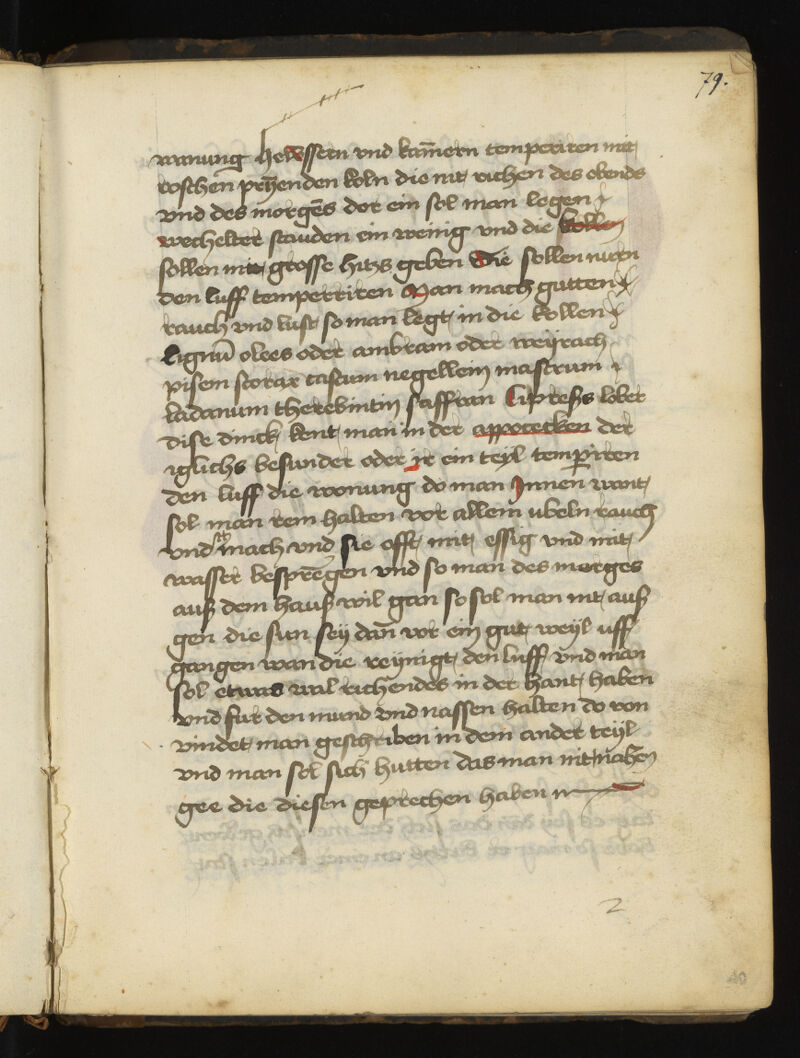 79.
wanung hewssern vnd kam̄ern temperiren mit
roschen prēnenden koln die nit richen des obends
vnd des morgēs dor ein sol man legen
wechelter stauden ein wenig vnd die kollen
sollen nit grosse hitzs geben Die sollen nurn
den luff temperriren Man mach gutten
rauch vnd lust so man legt in die kollen
Lignū oloes oder ambram oder weyrach
pisem storax castum negellein mastrum
ladanum therebintin saffran Cipreſs lober
dise dinck kent man in der appotecken der
iglichs besunder oder ir ein teyl temperiren
den luff die wonung do man Innen want
sol man rein halten vor allem ubeln rauch
vnd mach vnd sie offt mit essig vnd mit
wasser besprēgen vnd so man des morges
auß dem hauß wil gan so sol man nit auß
gen die sun sey dan̄ vor ein gut weyl uff
gangen wan die reynigt den luff vnd man
sol etwas wal richendes in der hant haben
vnd fur den mund vnd nassen halten do von
vindet man geschriben in dem ander teyl
vnd man sol sich hutten das man nit nahen
gee die diesen geprechen haben
2
40